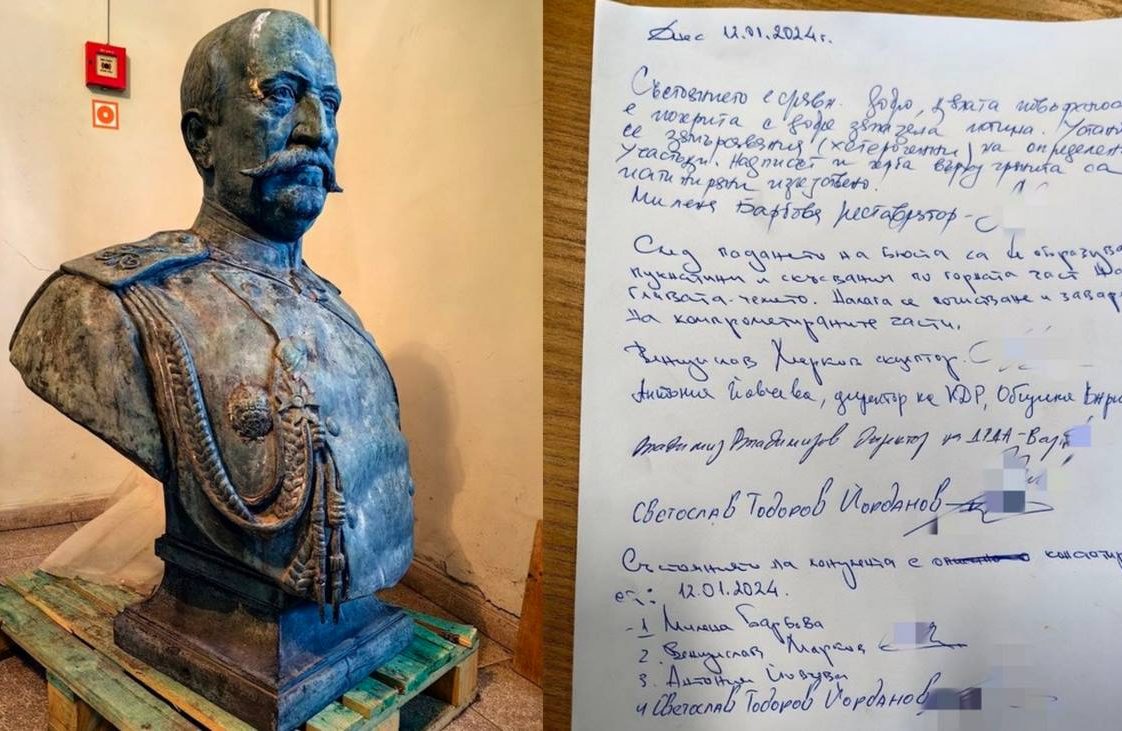 Днес 12.01.2024г.
Състоянието е сравн. добро, цялата повърхнос
е покрита с добре запазена патина. Устан
се замърсявания (хетерогенни) на определен
участъци. Надписът и герба върху гранита са
патинирани изкуствено.
Милена Барбова реставратор -
След падането на бюста са се образува
пукнатини и скъсвания по горната част на
главата - челото. Налага се почистване и завар
на компрометираните части.
Венцислав Марков скулптор.
Антония Йовчева, директор на КДР, Община Варн
Владимир Владимиров Директор на ДТДА - Вар
Светослав Тодоров Йорданов
Състоянието на монумента е констатир
12.01.2024.
1 Милена Барбова
2. Венцислав Марков
3. Антония Йовчева
4 Светослав Тодоров Йорданов